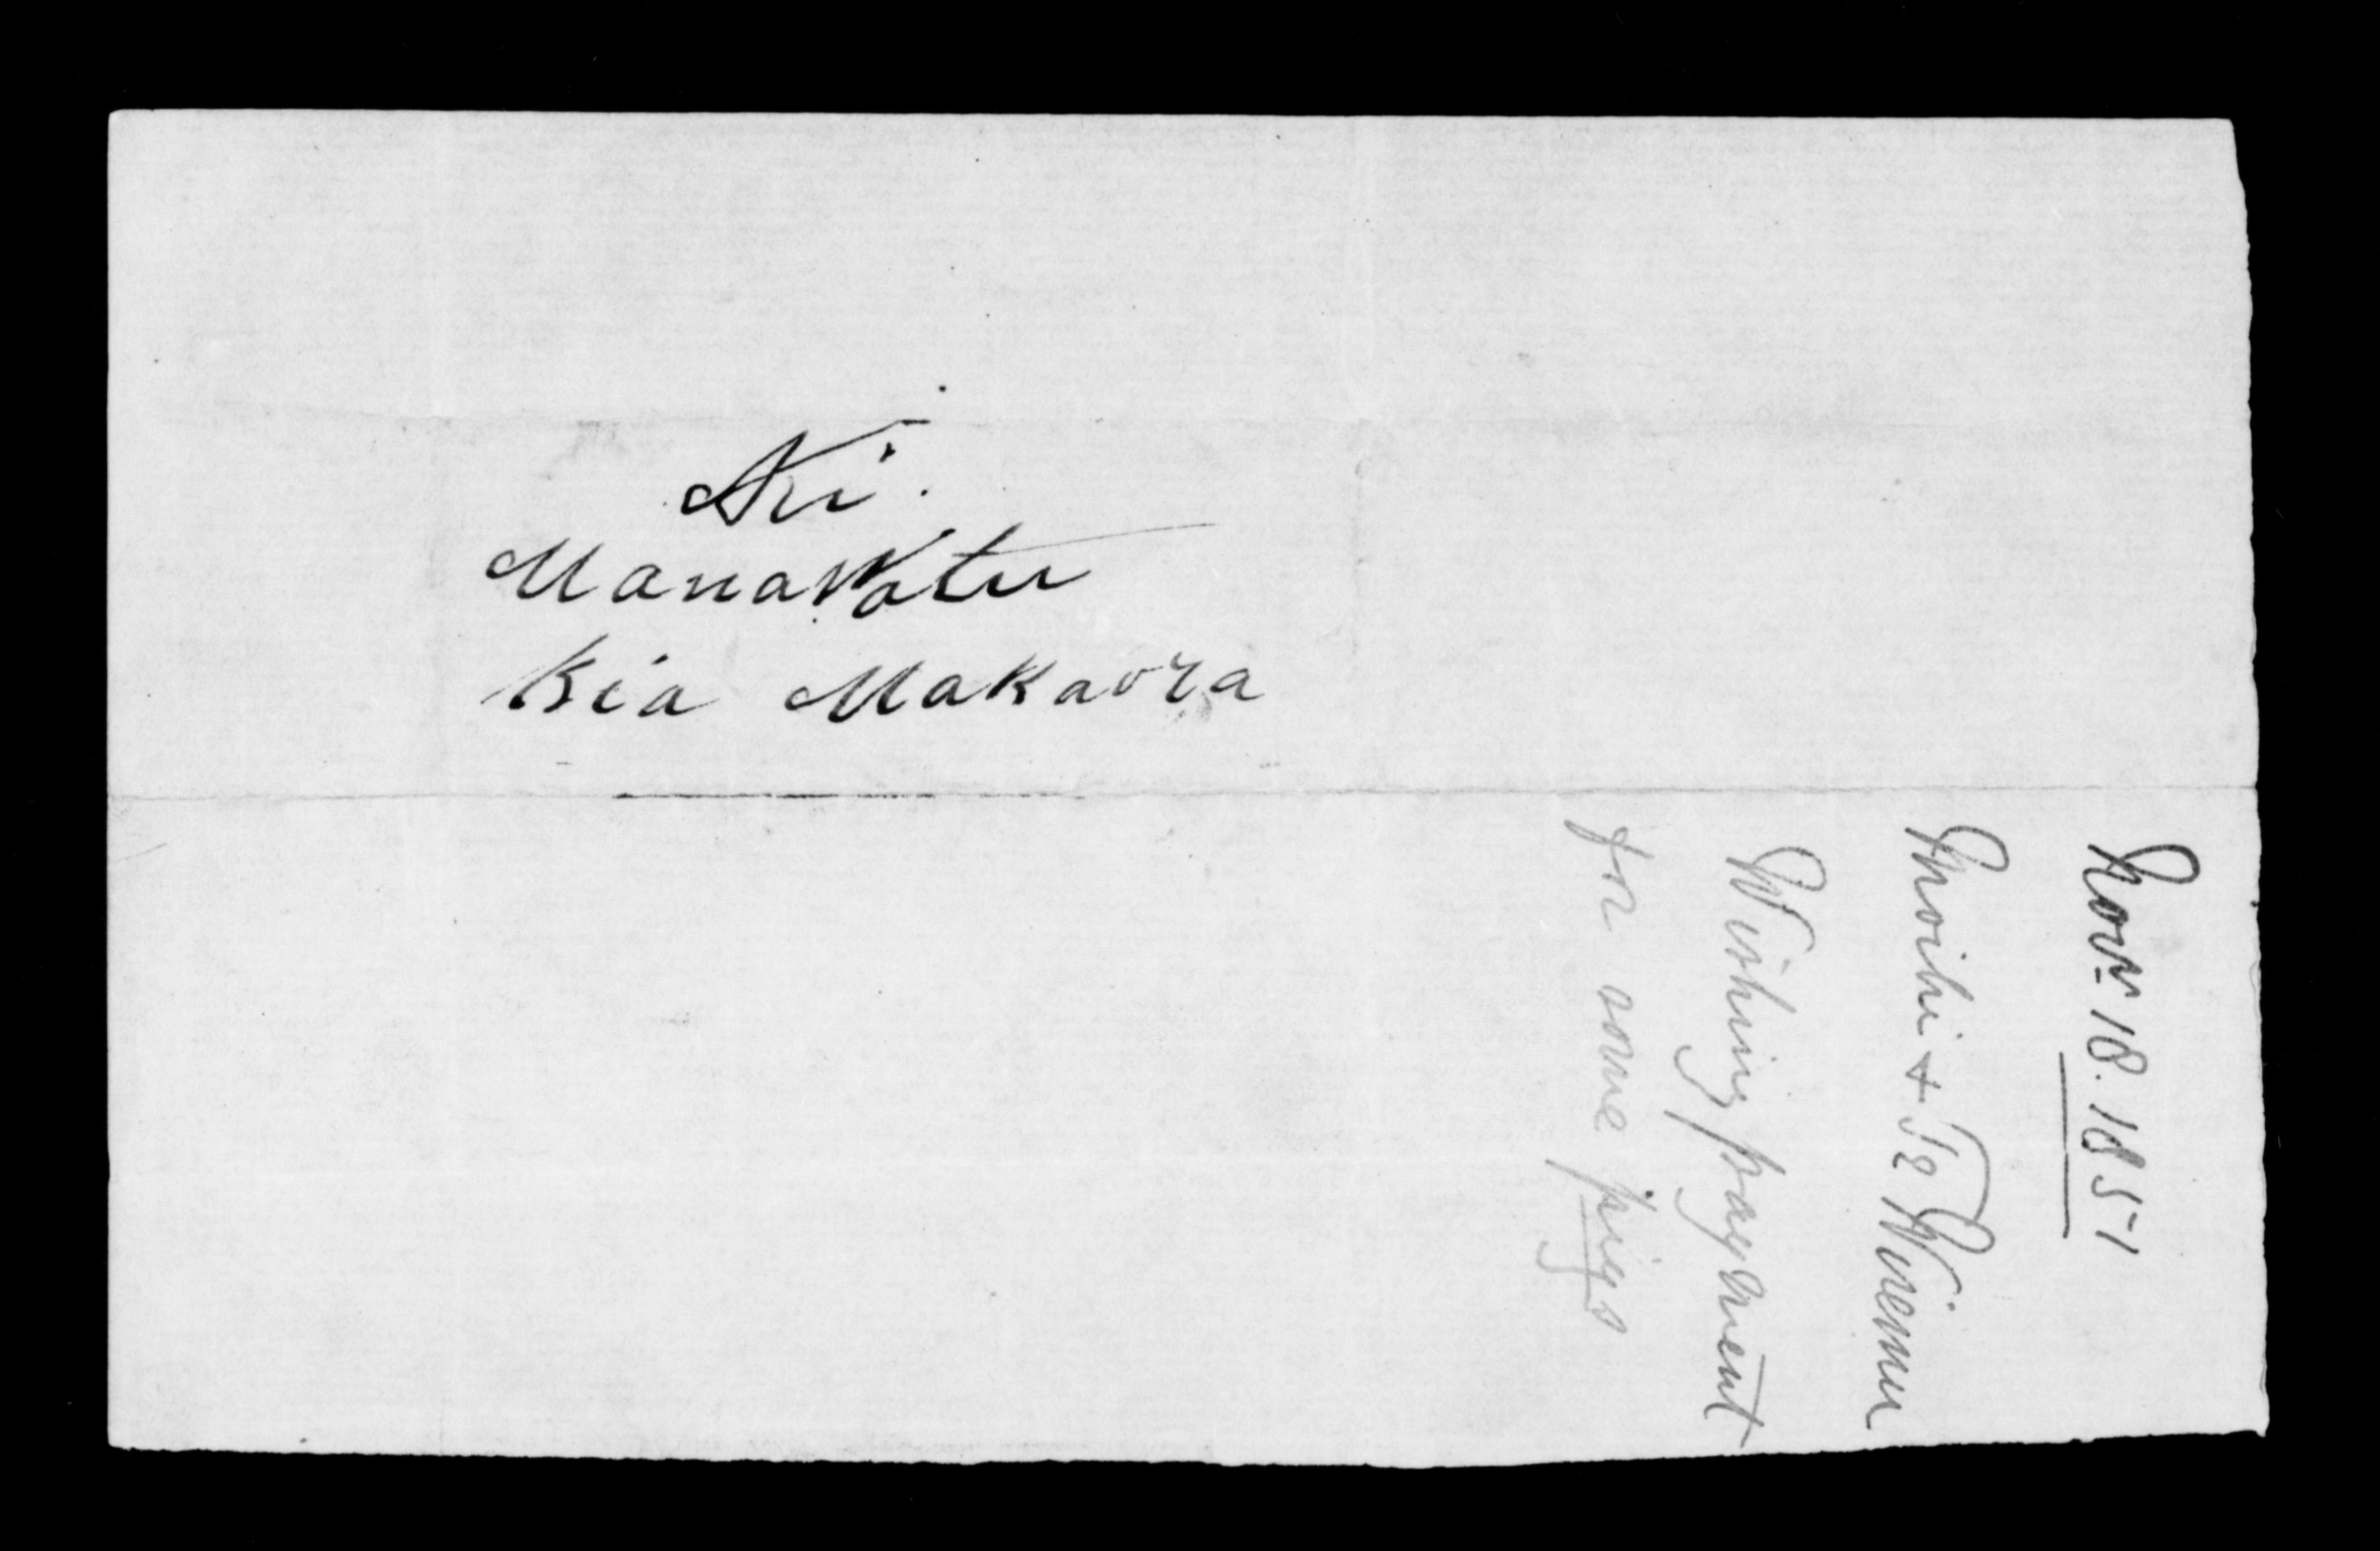 Ki
Manawatu
Kia Makaora
Novr 18. 1851
Moihi & Te Wiremu
Wishing payment
for some pigs